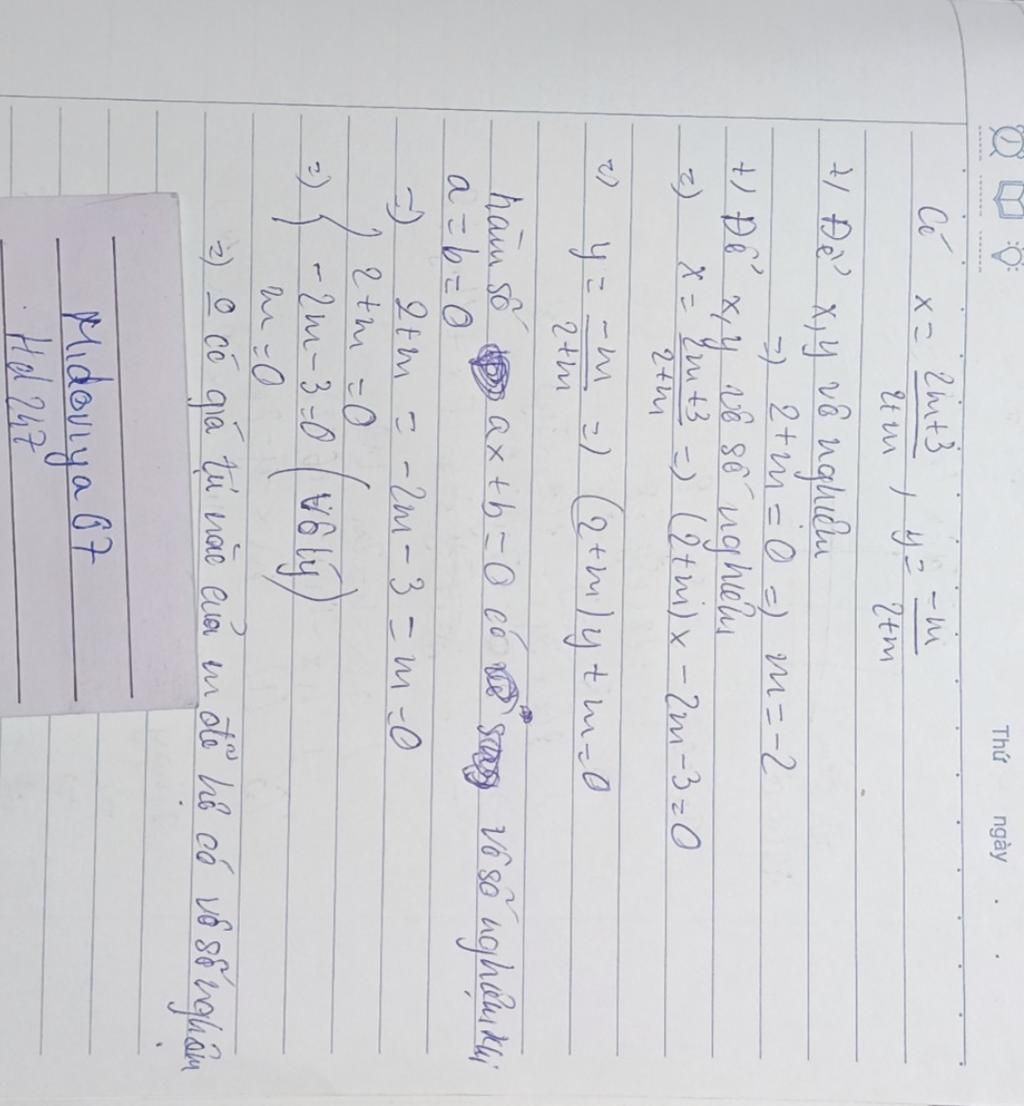 Thứ ngày
Có x = 2m+3 / 2+m , y = -m / 2+m
+) Để x, y vô nghiệm
=) 2+m = 0 =) m = -2
+) Để x, y vô số nghiệm
=) x = 2m+3 / 2+m =) (2+m)x - 2m - 3 = 0
y = -m / 2+m =) (2+m)y + m = 0
hàm số ax + b = 0 có vô số nghiệm khi
a = b = 0
=) 2+m = -2m - 3 = m = 0
=) { 2+m = 0
-2m - 3 = 0 (vô lý)
m = 0
=) có giá trị nào của m để hệ có vô số nghiệm
Midoviya07
Hd247